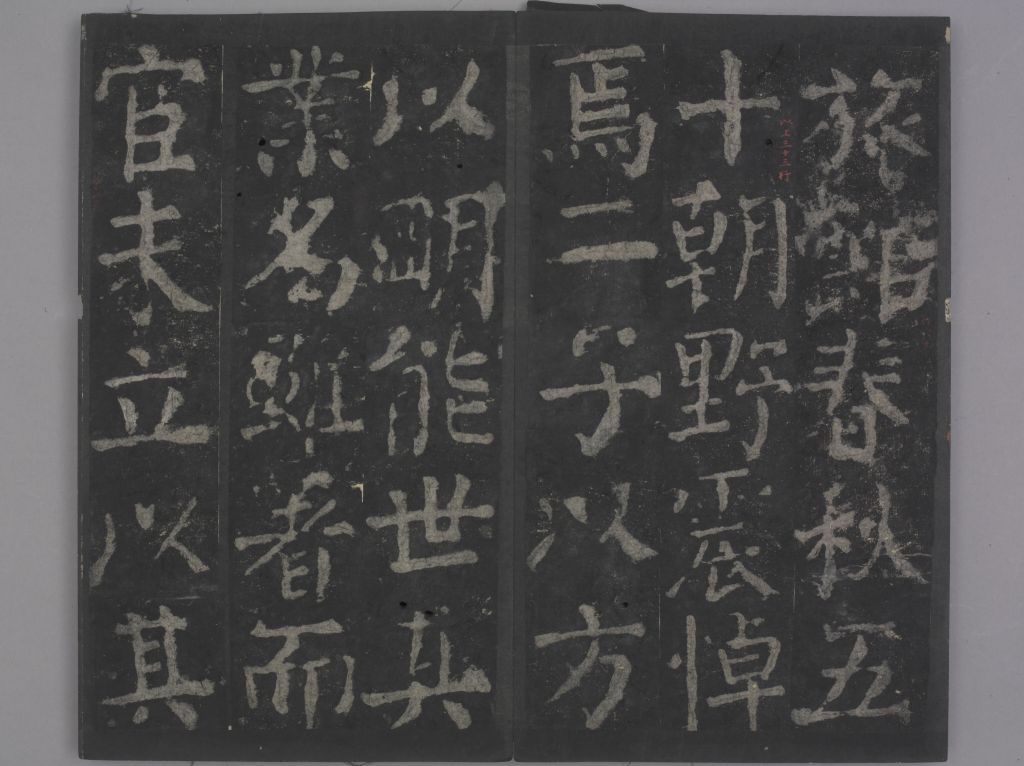 旅館春秋五
十朝野震悼
焉二子以方
以明能世其
業名雖著而
宦未立以其